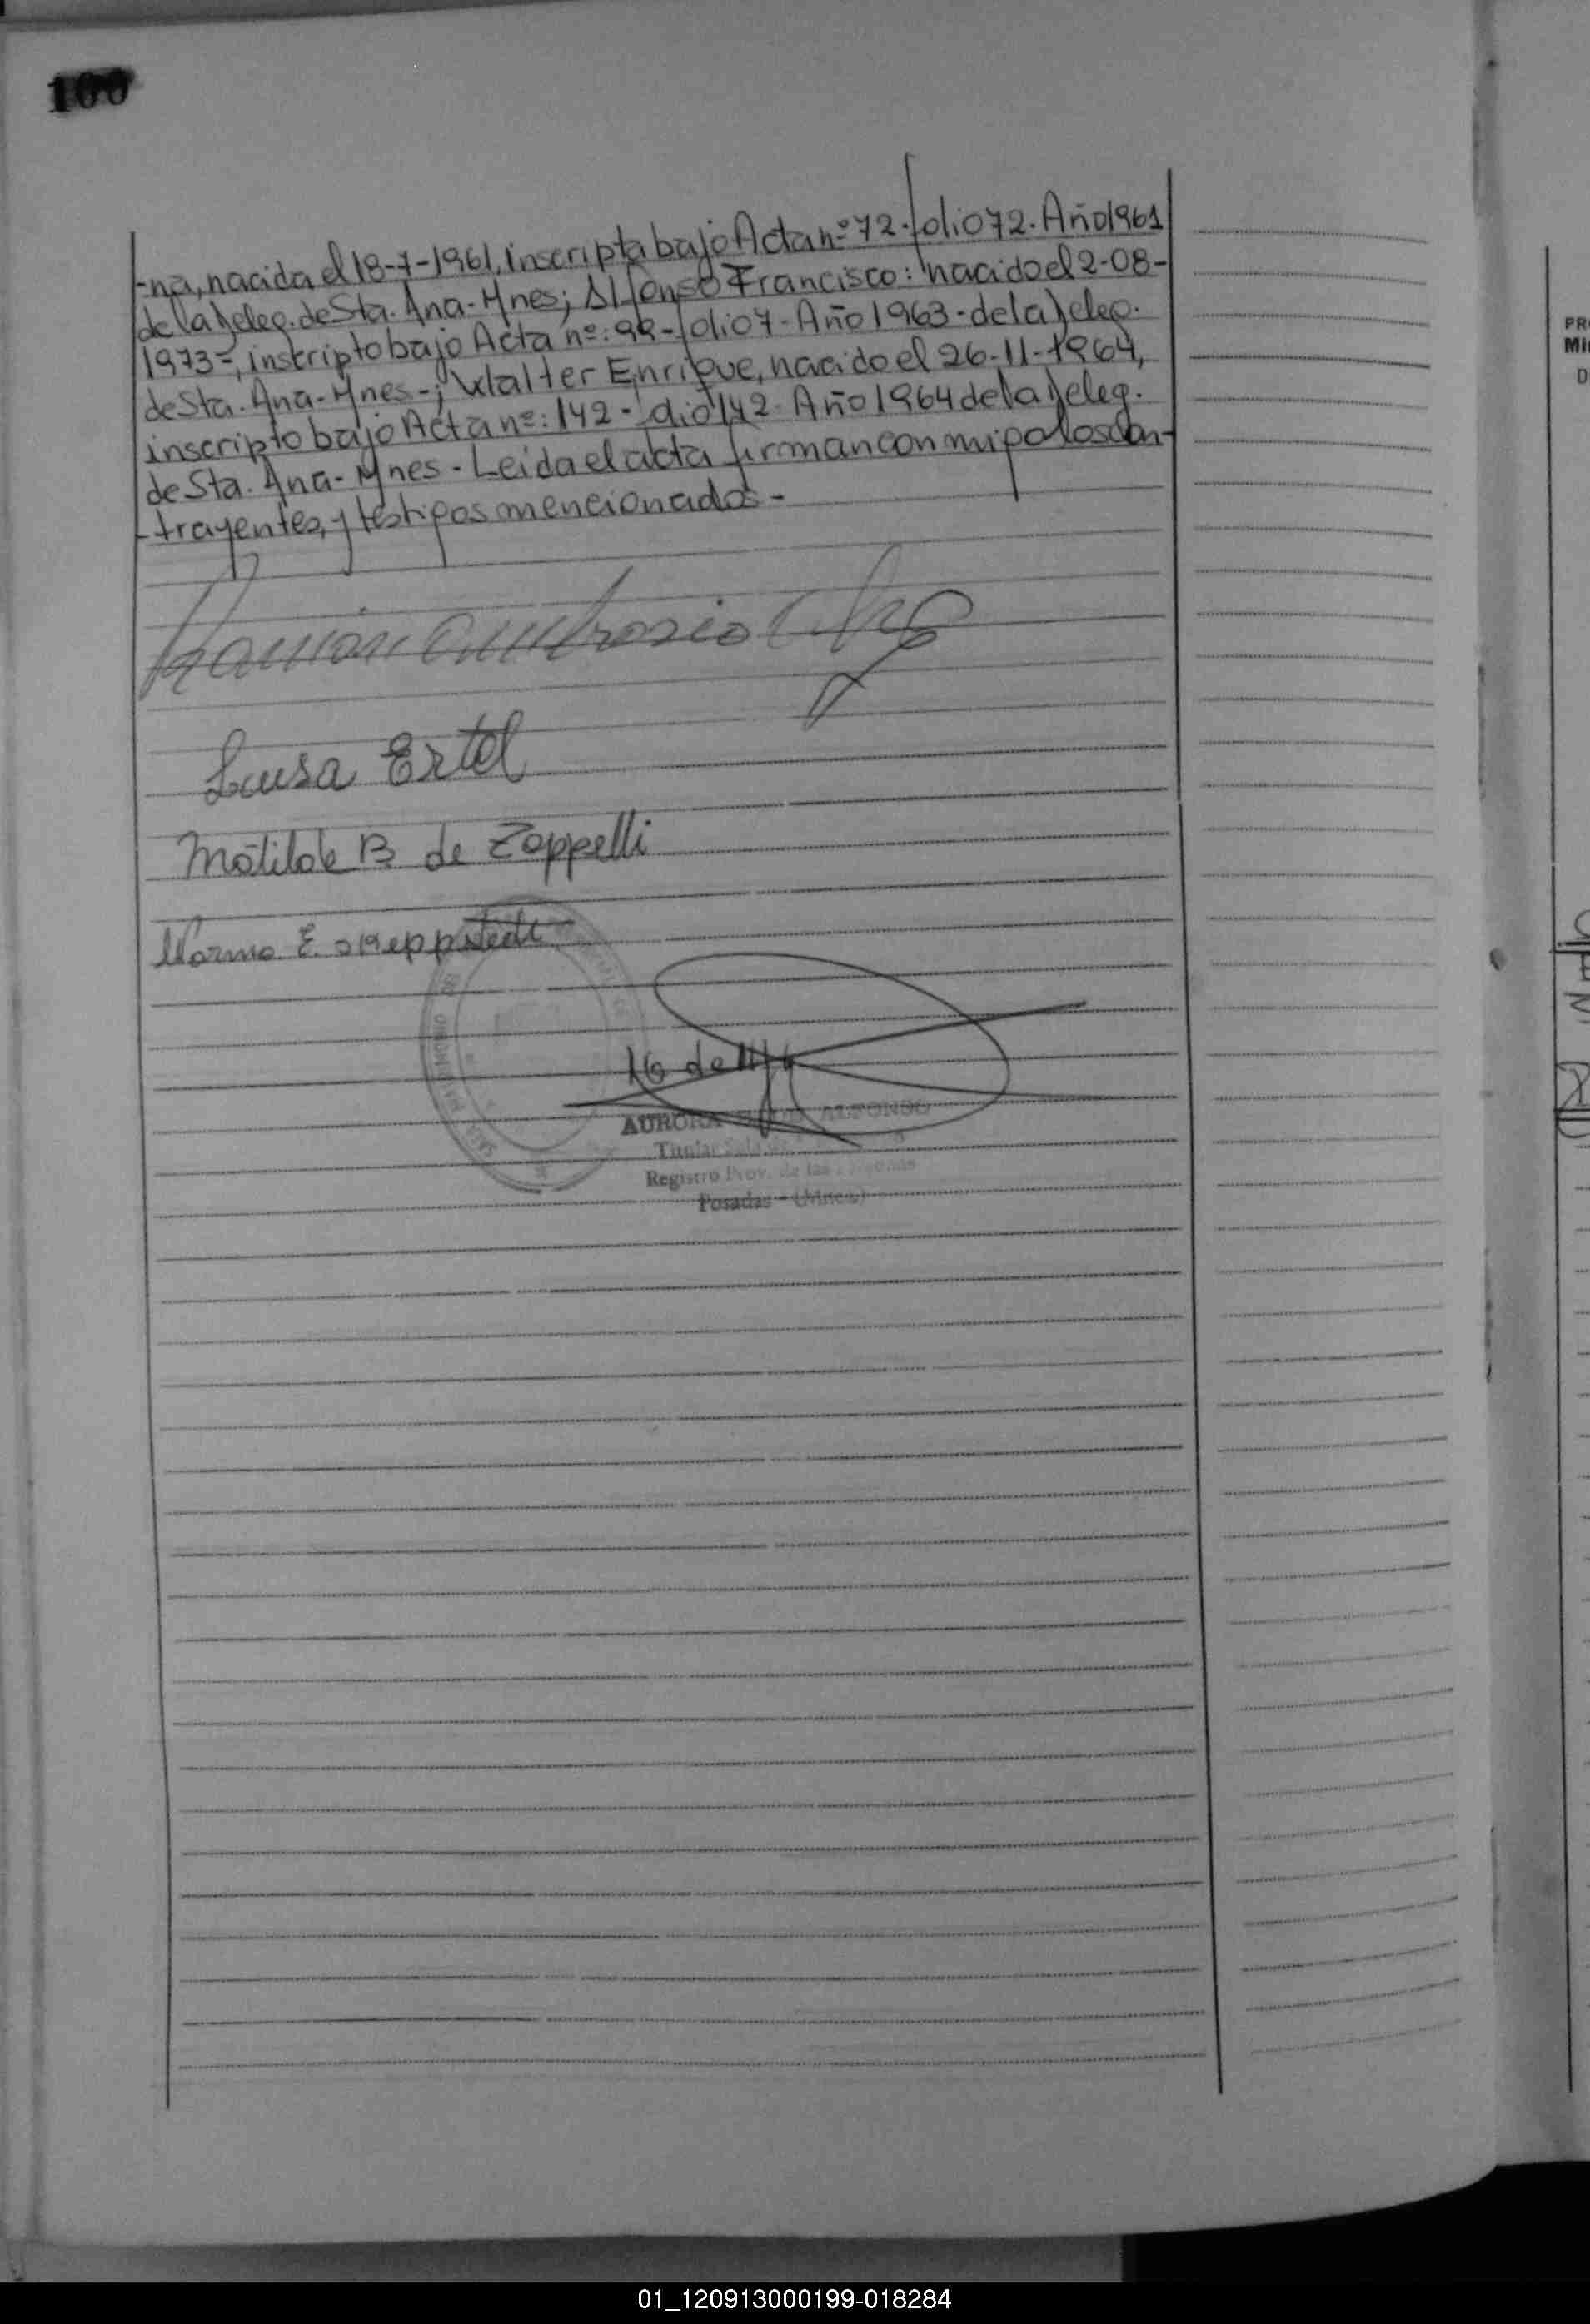 100
-na, nacida el 18-7-1961, inscripta bajo Acta nº 72. folio 72. Año 1961
de la Deleg. de Sta. Ana - Mnes; Alfonso Francisco: nacido el 2-08-
1973=, inscripto bajo Acta nº: 99 - folio 7 - Año 1963 - de la Deleg.
de Sta. Ana - Mnes -; Walter Enrique, nacido el 26-11-1964,
inscripto bajo Acta nº: 142 - folio 142. Año 1964 de la Deleg.
de Sta. Ana - Mnes - Leida el acta firman con migo los con-
-trayentes, y testigos mencionados -
Ramón Ambrosio
Luisa Ertel
Matilde B. de Zappelli
Norma E.
AURORA ALFONSO
Titular Sala de
Registro Prov. de las Personas
Posadas - (Mnes.)
PR
MI
D
01_120913000199-018284